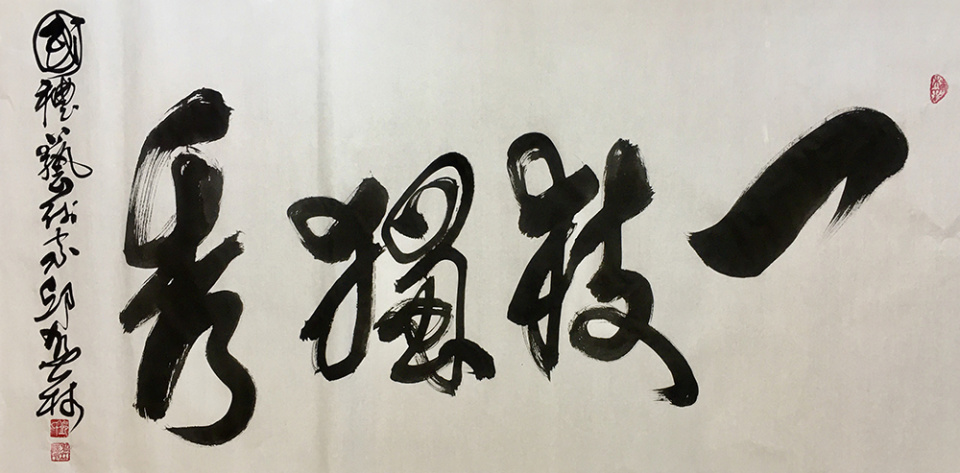 一枝獨秀
國禮藝術家邱林